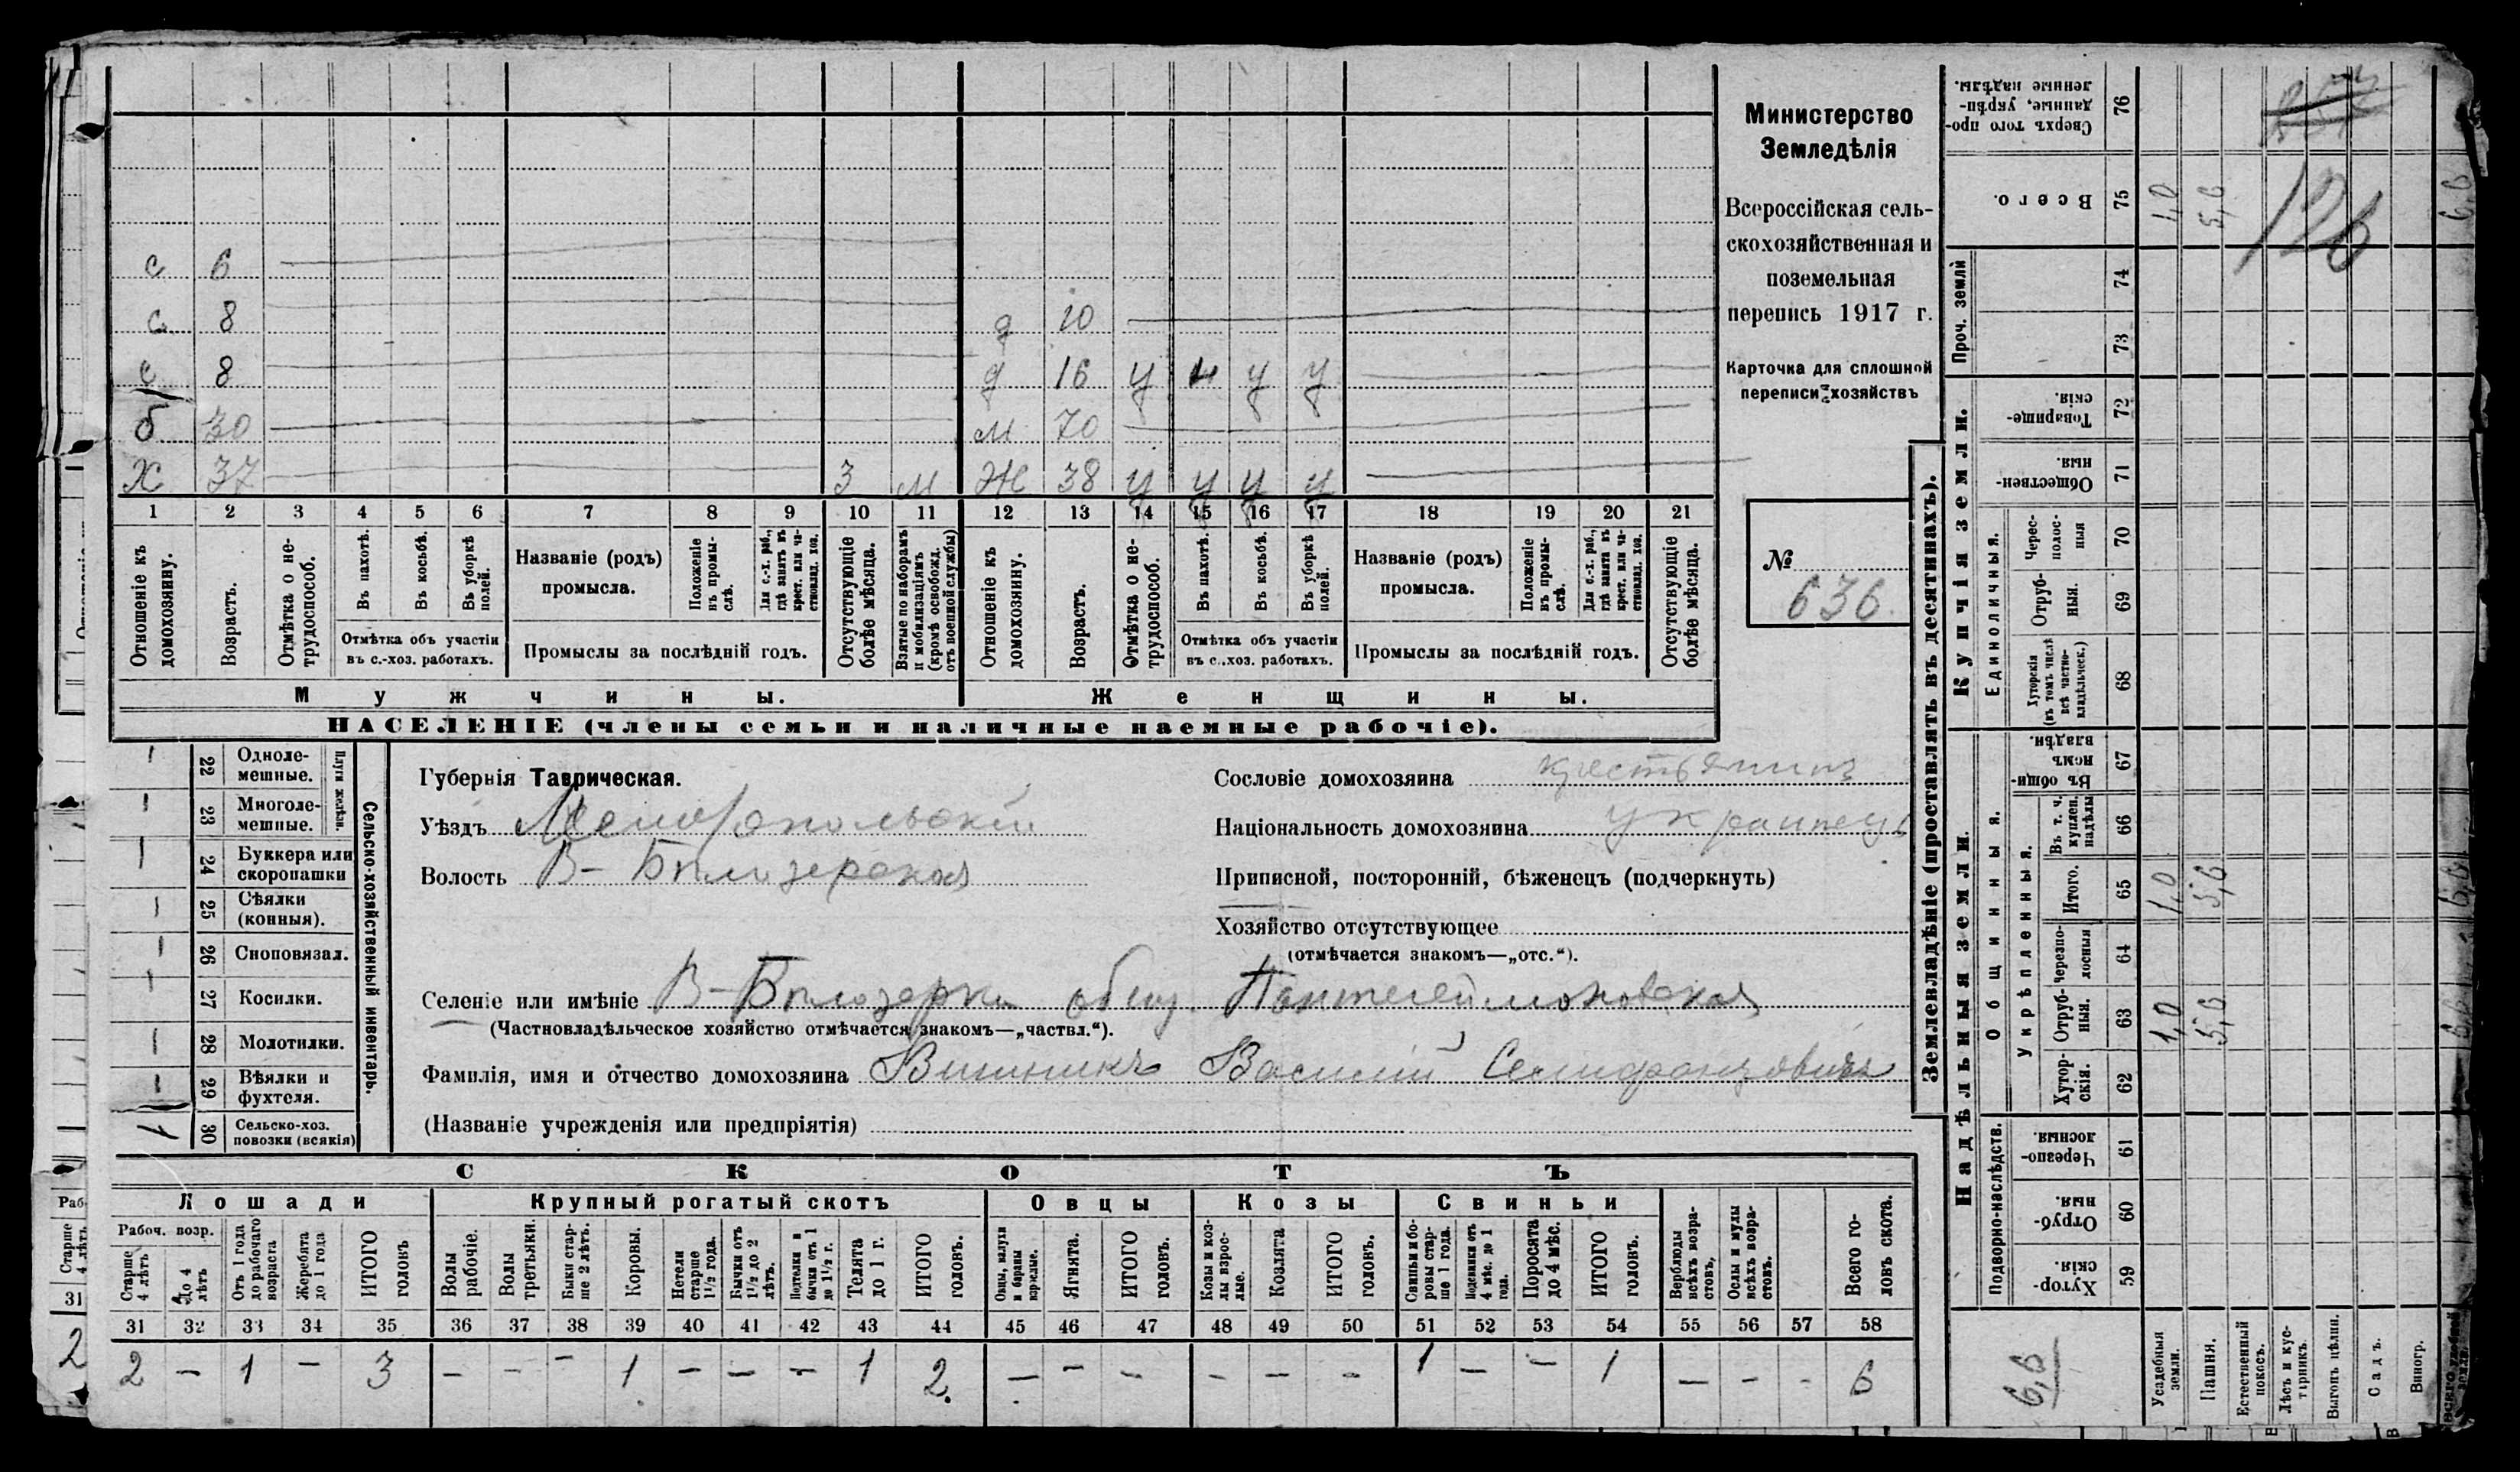 с 6
с 8 д 10
с 8 д 16 у н у у
б 30 м 70
Х 37 3 м Ж 38 у у у у
1 2 3 4 5 6 7 8 9 10 11 12 13 14 15 16 17 18 19 20 21
Отношеніе къ домохозяину.
Возрастъ.
Отмѣтка о нетрудоспособ.
Въ пахотѣ.
Въ косьбѣ.
Въ уборкѣ полей.
Отмѣтка объ участіи
въ с.-хоз. работахъ.
Названіе (родъ)
промысла.
Положеніе въ промыслѣ.
Для с.-х. раб., гдѣ занятъ въ крест. или частновлад. хоз.
Промыслы за послѣдній годъ.
Отсутствующіе болѣе мѣсяца.
Взятые по наборамъ и мобилизаціямъ (кромѣ освобожд. отъ военной службы)
Отношеніе къ домохозяину.
Возрастъ.
Отмѣтка о нетрудоспособ.
Въ пахотѣ.
Въ косьбѣ.
Въ уборкѣ полей.
Отмѣтка объ участіи
въ с.-хоз. работахъ.
Названіе (родъ)
промысла.
Положеніе въ промыслѣ.
Для с.-х. раб., гдѣ занятъ въ крест. или частновлад. хоз.
Промыслы за послѣдній годъ.
Отсутствующіе болѣе мѣсяца.
Мужчины. Женщины.
НАСЕЛЕНІЕ (члены семьи и наличные наемные рабочіе).
Министерство
Земледѣлія
Всероссійская сель-
скохозяйственная и
поземельная
перепись 1917 г.
Карточка для сплошной
переписи хозяйствъ
№
636
Сельско-хозяйственный инвентарь.
Плуги желѣзн.
— 22 Одноле-
мешные.
— 23 Многоле-
мешные.
— 24 Буккера или
скоропашки
— 25 Сѣялки
(конныя).
— 26 Сноповязал.
— 27 Косилки.
— 28 Молотилки.
— 29 Вѣялки и
фухтеля.
1 30 Сельско-хоз.
повозки (всякія)
Губернія Таврическая.
Уѣздъ Мелитопольскій
Волость В-Бѣлозерская
Сословіе домохозяина крестьянинъ
Національность домохозяина украинецъ
Приписной, посторонній, бѣженецъ (подчеркнуть)
Хозяйство отсутствующее
(отмѣчается знакомъ—„отс.“).
Селеніе или имѣніе В-Бѣлозерка общ. Пантелеймоновская
(Частновладѣльческое хозяйство отмѣчается знакомъ—„частвл.“).
Фамилія, имя и отчество домохозяина Винникъ Василій
(Названіе учрежденія или предпріятія)
СКОТЪ
Лошади Крупный рогатый скотъ Овцы Козы Свиньи
Рабоч. возр.
Старше 4 лѣтъ
До 4 лѣтъ
Отъ 1 года до рабочаго возраста
Жеребята до 1 года
ИТОГО головъ
Волы рабочіе.
Волы третьяки.
Быки старше 2 лѣтъ.
Коровы.
Нетели старше 1½ года.
Бычки отъ 1½ до 2 лѣтъ.
Подтелки и бычки отъ 1 до 1½ г.
Телята до 1 г.
ИТОГО головъ.
Овцы, валухи и бараны взрослые.
Ягнята.
ИТОГО головъ.
Козы и козлы взрослые.
Козлята
ИТОГО головъ.
Свиньи и боровы старше 1 года.
Подсвинки отъ 4 мѣс. до 1 года.
Поросята до 4 мѣс.
ИТОГО головъ.
Верблюды всѣхъ возрастовъ.
Ослы и мулы всѣхъ возрастовъ.
Всего головъ скота.
31 32 33 34 35 36 37 38 39 40 41 42 43 44 45 46 47 48 49 50 51 52 53 54 55 56 57 58
2 — 1 — 3 — — — 1 — — — 1 2 — — — — — — 1 — — 1 — — - 6
Землевладѣніе (проставлять въ десятинахъ).
Надѣльныя земли.
Купчія земли.
Проч. земли
Подворно-наслѣдств.
Общинныя.
Укрѣпленныя.
Единоличныя.
Хуторскія 59
Отрубныя. 60
Черезполосныя. 61
Хуторскія. 62
Отрубныя. 63
Черезполосныя 64
Итого. 65
Въ т. ч. куплен. надѣлы 66
Въ общинномъ владѣн. 67
Хуторскія (въ томъ числѣ всѣ частновладѣльческ.) 68
Отрубныя. 69
Чересполосныя 70
Общественныя. 71
Товарищескія. 72
73
74
Всего. 75
Сверхъ того проданные, укрѣпленные надѣлы. 76
Усадебныя земли. 1,0 1,0 1,0
Пашня. 5,6 5,6 5,6
Естественный покосъ.
Лѣсъ и кустарникъ.
Выгонъ цѣлин.
Садъ.
Виногр.
6,6 6,6 6,6
6,6
257
126